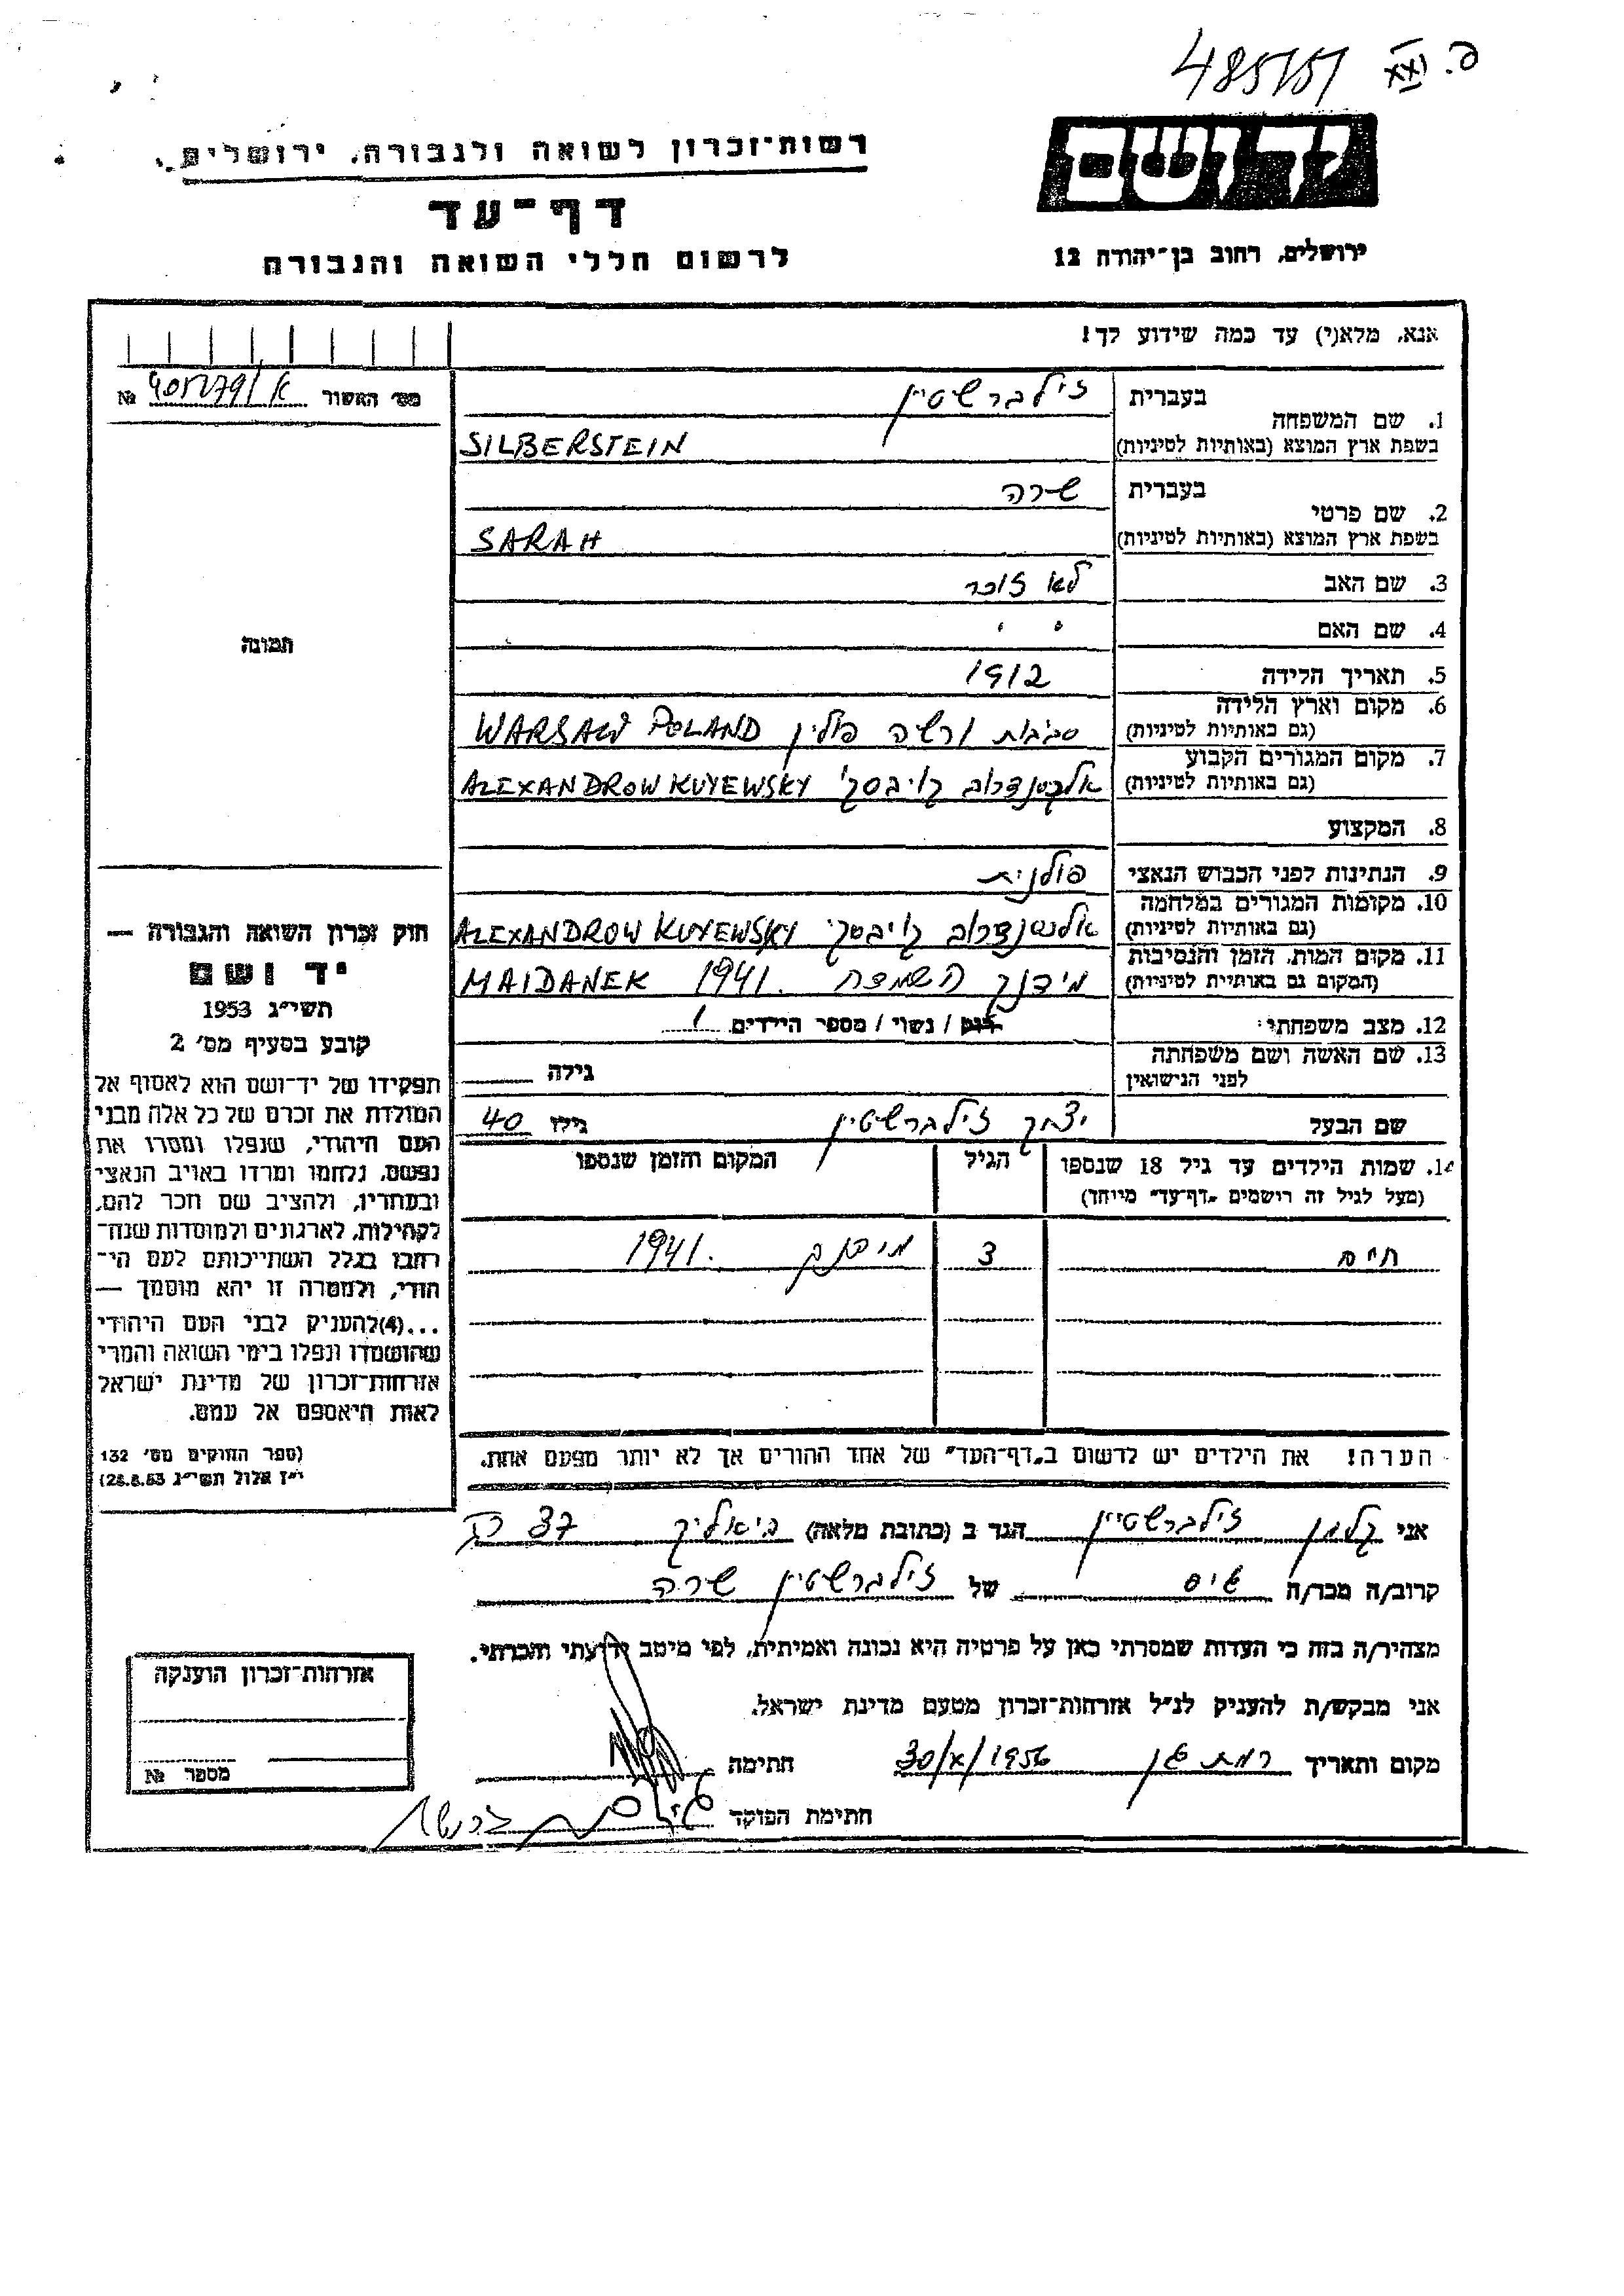 485/51 XXI .פ
יד ושם
רשות־זכרון לשואה ולגבורה, ירושלים
דף־עד
לרשום חללי השואה והגבורה
ירושלים, רחוב בן־יהודה 12
אנא, מלא(י) עד כמה שידוע לך!
מס׳ האשור №
1. שם המשפחה
בעברית זילברשטיין
בשפת ארץ המוצא (באותיות לטיניות) SILBERSTEIN
2. שם פרטי
בעברית שרה
בשפת ארץ המוצא (באותיות לטיניות) SARAH
3. שם האב לא זוכר
4. שם האם " "
5. תאריך הלידה 1912
6. מקום וארץ הלידה
(גם באותיות לטיניות) סביבות ורשה פולין WARSAW POLAND
7. מקום המגורים הקבוע
(גם באותיות לטיניות) אלכסנדרוב קויבסקי ALEXANDROW KUYEWSKY
8. המקצוע
9. הנתינות לפני הכבוש הנאצי פולנית
10. מקומות המגורים במלחמה
(גם באותיות לטיניות) אלכסנדרוב קויבסקי ALEXANDROW KUYEWSKY
11. מקום המות, הזמן והנסיבות
(המקום גם באותיות לטיניות) מידנק השמדה 1941. MAIDANEK
12. מצב משפחתי: רווק / נשוי / מספר הילדים 1
13. שם האשה ושם משפחתה
לפני הנישואין גילה
שם הבעל יצחק זילברשטיין גילו 40
14. שמות הילדים עד גיל 18 שנספו הגיל המקום והזמן שנספו
(מעל לגיל זה רושמים „דף־עד״ מייוחד)
חיים 3 מידנק 1941.
הערה! את הילדים יש לרשום ב„דף־העד״ של אחד ההורים אך לא יותר מפעם אחת.
אני קלמן זילברשטיין הגר ב (כתובת מלאה) ביאליק 37 רג
קרוב/ה מכר/ה גיס של זילברשטיין שרה
מצהיר/ה בזה כי העדות שמסרתי כאן על פרטיה היא נכונה ואמיתית, לפי מיטב ידיעתי והכרתי.
אני מבקש/ת להעניק לנ״ל אזרחות־זכרון מטעם מדינת ישראל.
מקום ותאריך רמת גן 30/X/1956 חתימה
חתימת הפוקד
תמונה
חוק זכרון השואה והגבורה —
יד ושם
תשי״ג 1953
קובע בסעיף מס׳ 2
תפקידו של יד־ושם הוא לאסוף אל
המולדת את זכרם של כל אלה מבני
העם היהודי, שנפלו ומסרו את
נפשם, נלחמו ומרדו באויב הנאצי
ובעוזריו, ולהציב שם וזכר להם,
לקהילות, לארגונים ולמוסדות שנח־
רבו בגלל השתייכותם לעם הי־
הודי, ולמטרה זו יהא מוסמך —
...(4)להעניק לבני העם היהודי
שהושמדו ונפלו בימי השואה והמרי
אזרחות־זכרון של מדינת ישראל
לאות היאספם אל עמם.
(ספר החוקים מס׳ 132
י״ז אלול תשי״ג 28.8.53)
אזרחות־זכרון הוענקה
מספר №